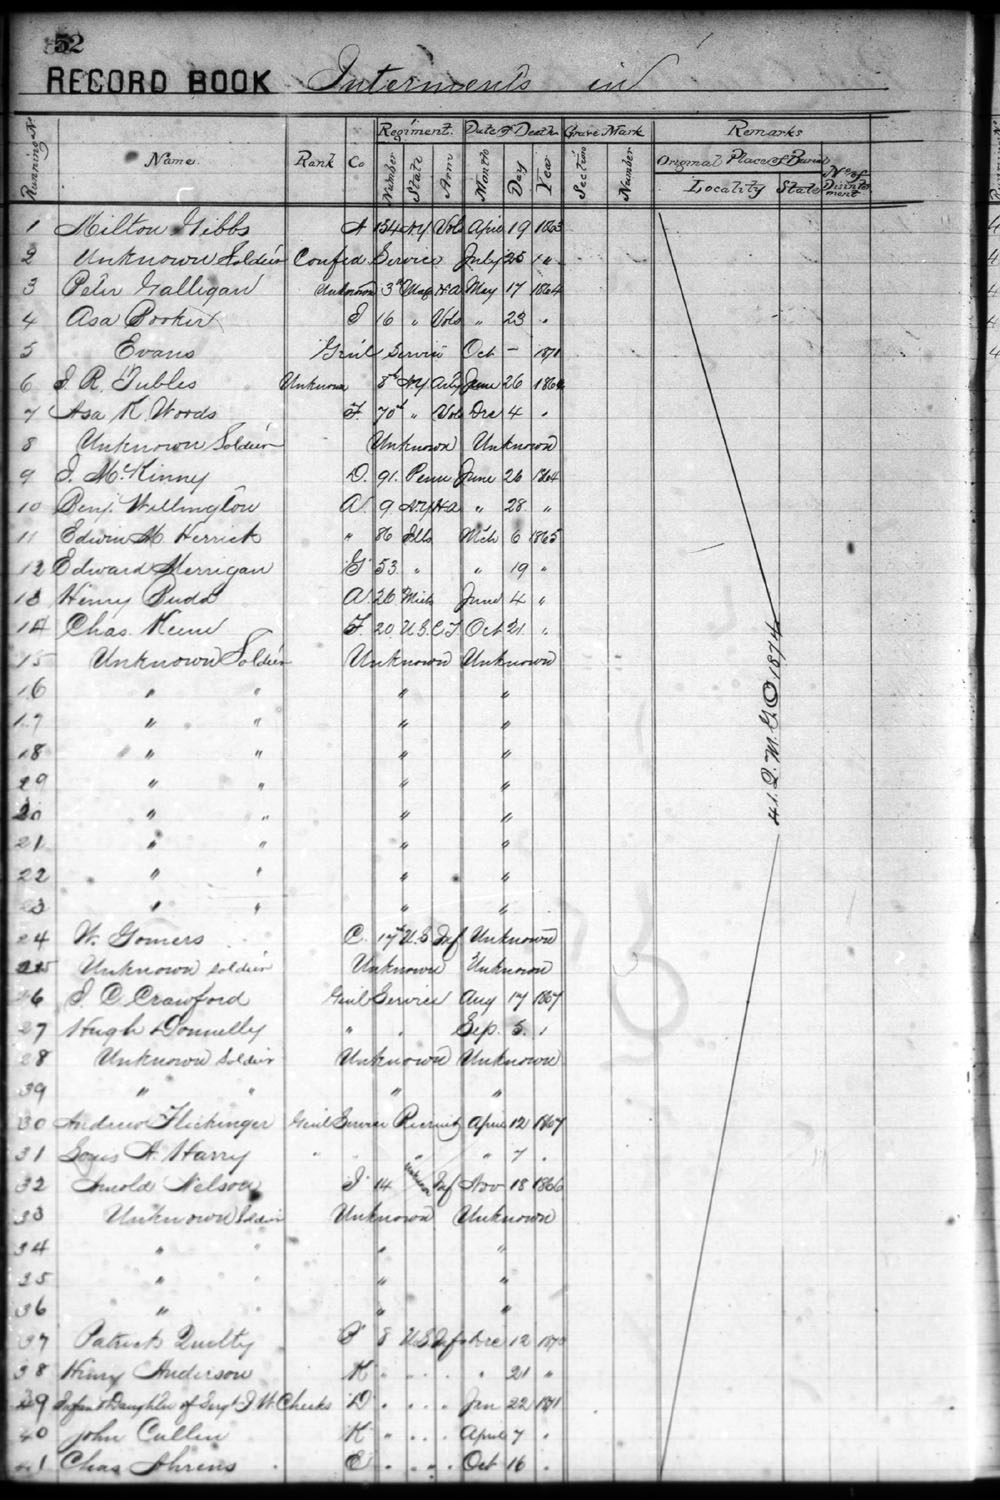 52
RECORD BOOK Interments in
Running No. Name. Rank Co Regiment. Date of Death Grave Mark Remarks
Number State Arm Month Day Year Section Number Original Place of Burial No. of Disinterment
Locality State
1 Milton Gibbs A 154 NY Vols Apr 19 1863
2 Unknown Soldier Confed Service July 25 " "
3 Peter Galligan Unknown 3d H A May 17 1864
4 Asa Booker I 16 " Vols " 23 "
5 Evans Genl Service Oct — 1871
6 J. R. Tubles Unknown 8th NY Arty June 26 1864
7 Asa K Woods F. 70th " Vols Dec 4 "
8 Unknown Soldier Unknown Unknown
9 J. McKinny D. 91. Penn June 26 1864
10 Benj. Wellington A. 9 NY H A " 28 "
11 Edwin M Herrick " 86 Ills Mch 6 1865
12 Edward Merrigan G 53 " " 19 "
13 Henry Budd A. 26 Mich June 4 "
14 Chas. F. 20 U.S.C.T Oct 21 "
15 Unknown Soldier Unknown Unknown
16 " " " "
17 " " " "
18 " " " "
29 " " " "
20 " " " "
21 " " " "
22 " " " "
23 " " " "
24 W. Gomers C. 17th U.S Inf Unknown
25 Unknown Soldier Unknown Unknown
26 J C Crawford Genl Service Aug 17 1867
27 Hugh Donnelly " " Sep. 5. "
28 Unknown Soldier Unknown Unknown
39 " " " "
30 Andrew Flickinger Genl Service Recruit April 12 1867
31 Louis A. Harry " " " " 7 "
32 Arnold Nelson I 14 Unknown Inf Nov 18 1866
33 Unknown Soldier Unknown Unknown
34 " " " "
35 " " " "
36 " " " "
37 Patrick Quilty 8 U.S Inf Dec 12 1870
38 Henry Anderson K " " " " 21 "
39 Infant Daughter of Sergt J. W. Cheeks D " " " Jan 22 1871
40 John Cullen K " " " April 7 "
41 Chas Ahrens E " " " Oct 16 "
41. Q. M. G. O 1874